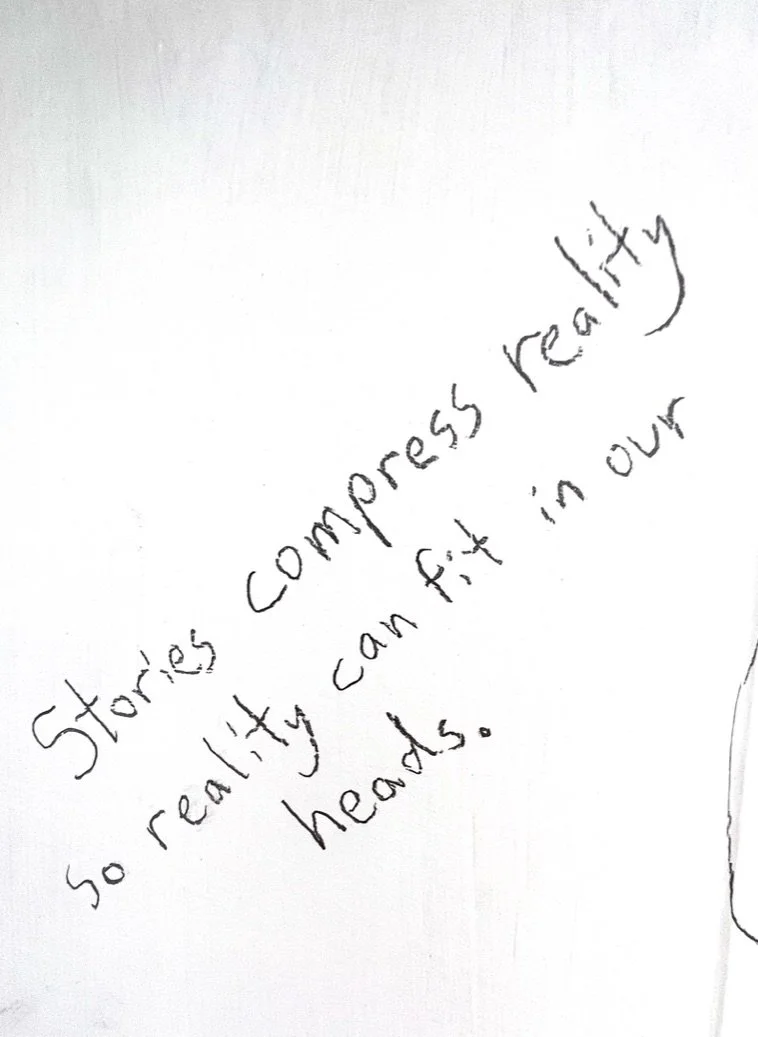 Stories compress reality
so reality can fit in our
heads.